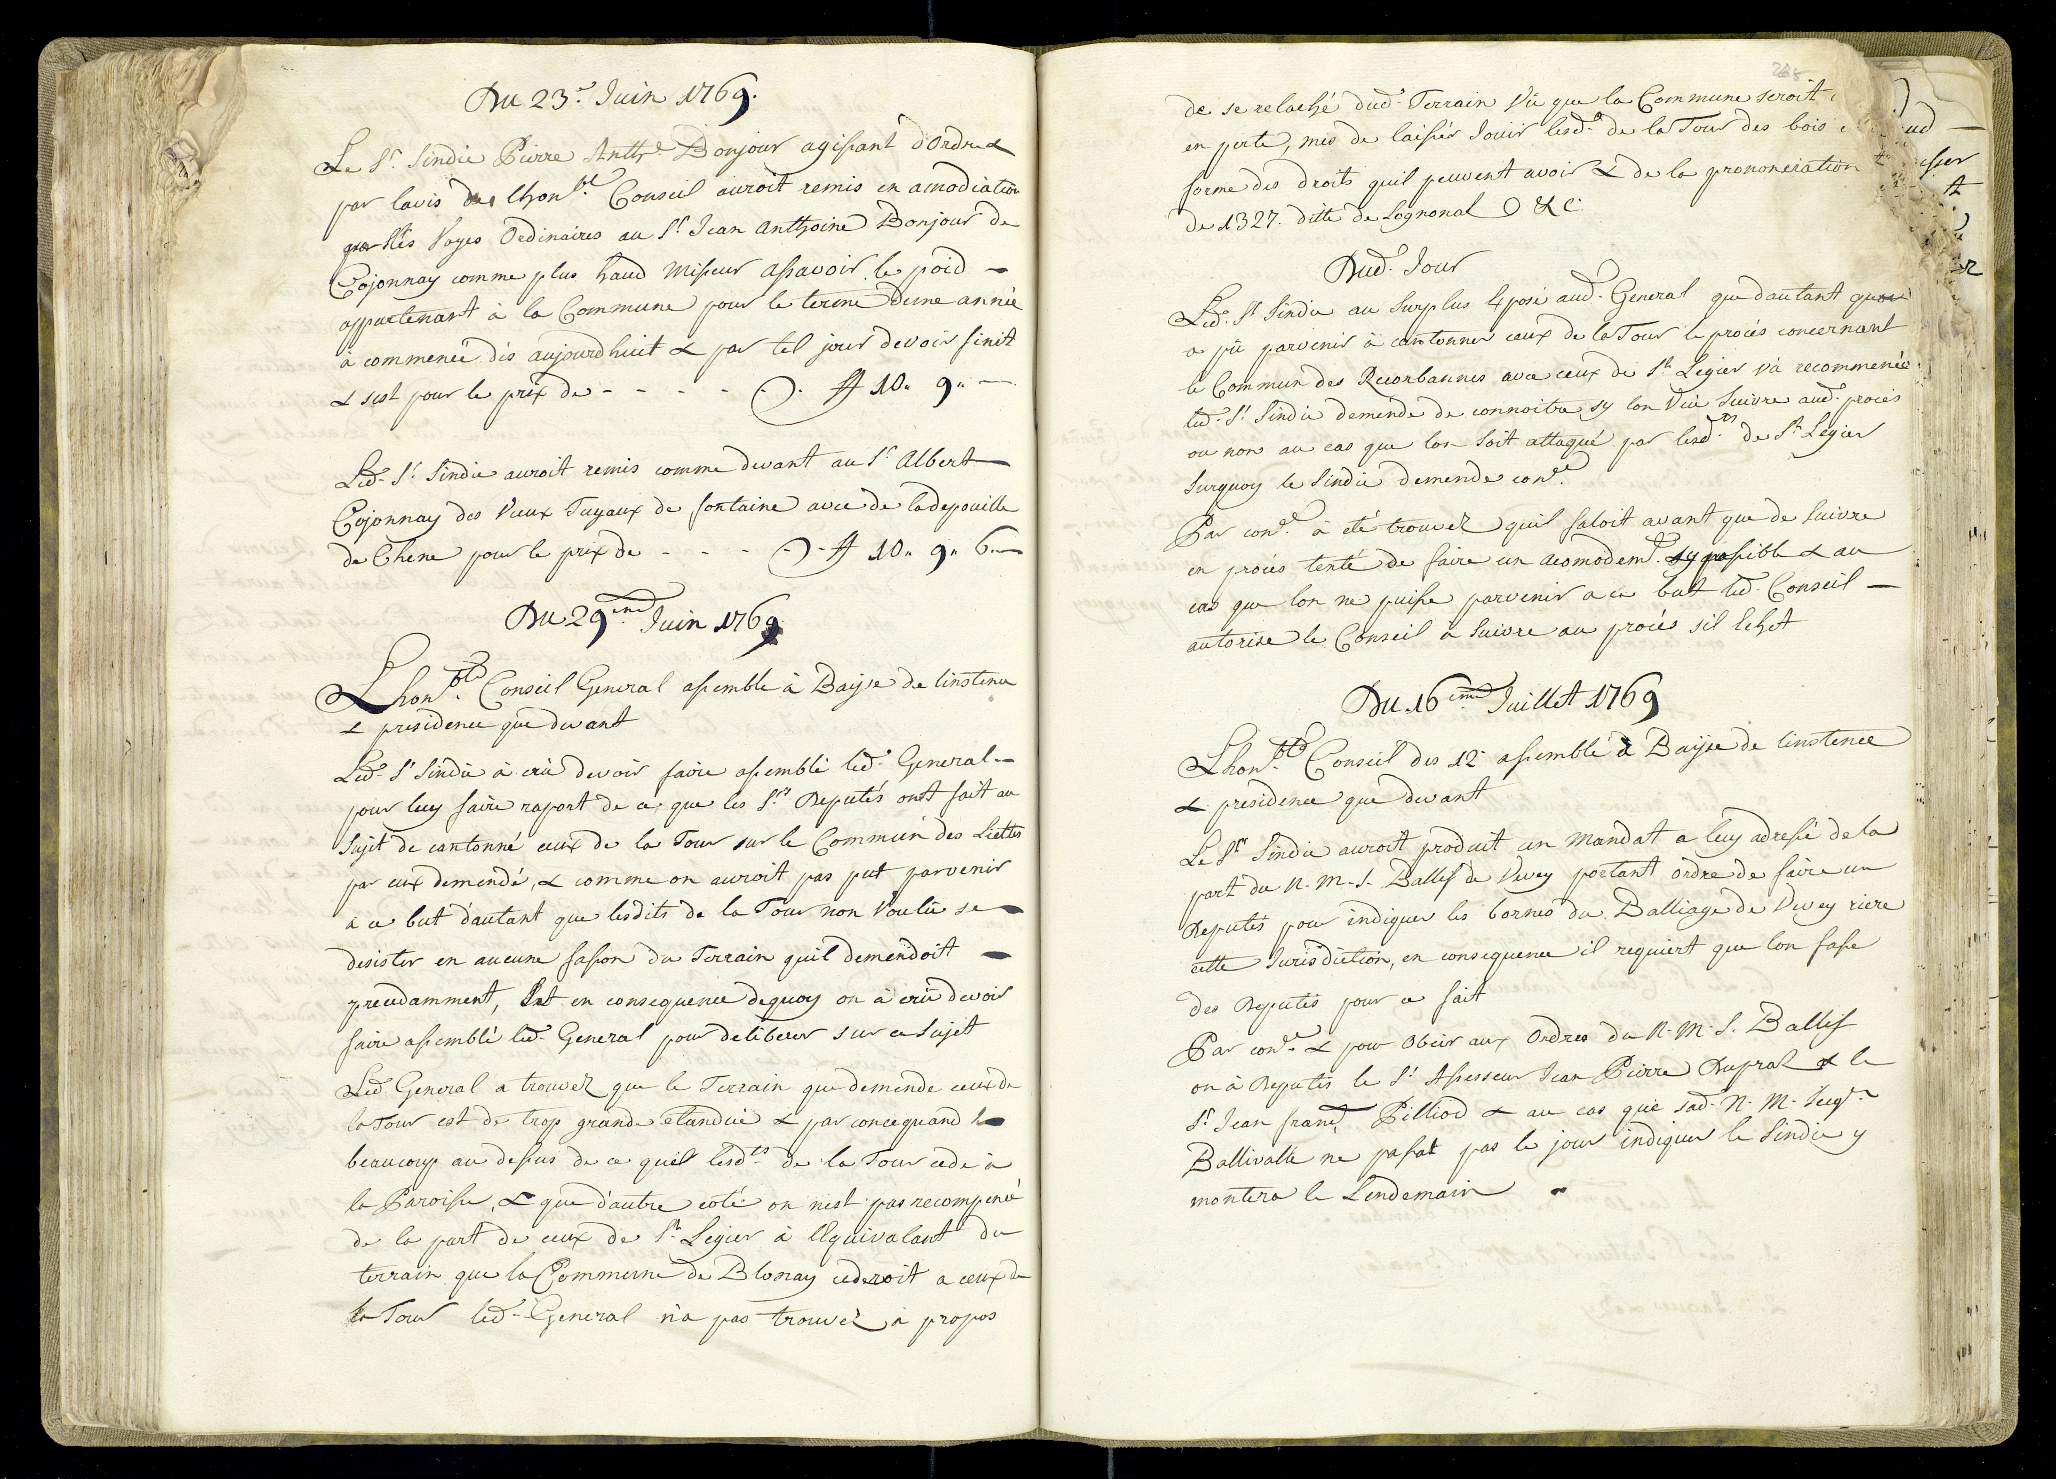 Du 23.e Juin 1769.
Le Sr. Sindic Pierre Anthe. Bonjour agissant d'Ordre &
par lavis de lhonble. Conseil auroit remis en amodiation
par les Voyes Ordinaires au Sr. Jean Anthoine Bonjour de
Cojonnay comme plus haud Miseur assavoir le poid
appartenant à la Commune pour le terme d'une année
à commencé dès aujourdhuit & par tel jour devoir finit
& sest pour le prix de - - - - - ff 10„ 9„ —
Led. Sr. Sindic auroit remis comme devant au Sr. Albert
Cojonnay des Vieux Tuyaux de fontaine avec de la depouille
de Chene pour le prix de - - - - ff 10„ 9„ 6„
Du 29.eme Juin 1769.
Lhonble. Conseil General assemblé à Baÿse de linstence
& presidence que devant
Led. Sr Sindic à crû devoir faire assemblé led. General
pour luy faire raport de ce que les Srs. Deputés ont fait au
Sujet de cantonné ceux de la Tour sur le Commun des Liettes
par eux demendé, & comme on auroit pas put parvenir
à ce but d'autant que lesdits de la Tour non Voulû se
desister en aucune fasson du Terrain quil demendoit
precedamment, Est en consequence dequoy on à crû devoir
faire assemblé led. General pour deliberer sur ce Sujet
Led. General a trouvez que le Terrain que demende ceux de
la Tour est de trop grande etandüe & par concequand
beaucoup au dessus de ce quil lesdts. de la Tour cede à
la Paroisse, & que d'autre coté on nest pas recompencé
de la part de ceux de St. Legier à lEquivalant du
terrain que la Commune de Blonay cederoit a ceux de
la Tour led. General n'a pas trouvéz à propos
de se relaché dud. Terrain Vû que la Commune seroit
en perte, mes de laissér Jouir lesds. de la Tour des bois
forme des droits quil peuvent avoir & de la prononciation
de 1327. ditte de Lognonal O & C.
Dud. Jour
Led. Sr. Sindic au Surplus Exposé aud. General que dautant quon
a pû parvenir à cantonner ceux de la Tour le procès concernant
le Commun des Reiorbannes avec ceux de St. Legier và recommencé
led. Sr. Sindic demende de connoitre sy lon Veû Suivre aud. procès
ou non au cas que lon Soit attaqué par lesdts. de St. Legier
Surquoy le Sindic demende conce.
Par conce. à eté trouvez quil faloit avant que de Suivre
en procès tenté de faire un acomodemt. sy possible & au
cas que lon ne puisse parvenir a ce but led. Conseil
autorise le Conseil à Suivre au procès sil Echet
Du 16eme Juillet 1769
Lhonble. Conseil des 12 assemblé à Baÿse de linstence
& presidence que devant
Le Sr. Sindic auroit produit un Mandat a luy adressé de la
part du N. M. S. Ballif de Vevey portant ordre de faire un
Deputés pour indiquer les bornes du Balliage de Vevey riere
cette Jurisdiction, en consequence il requiert que lon fasse
des Deputés pour ce fait
Par conce. & pour Obeir aux Ordres du N. M. S. Ballif
on à Deputés le Sr. Assesseur Jean Pierre Dupral & le
Sr. Jean francs. Pilliod & au cas que sad. N. M. Seigr.
Ballivalle ne passat pas le jour indiquer le Sindic y
montera le Lendemain